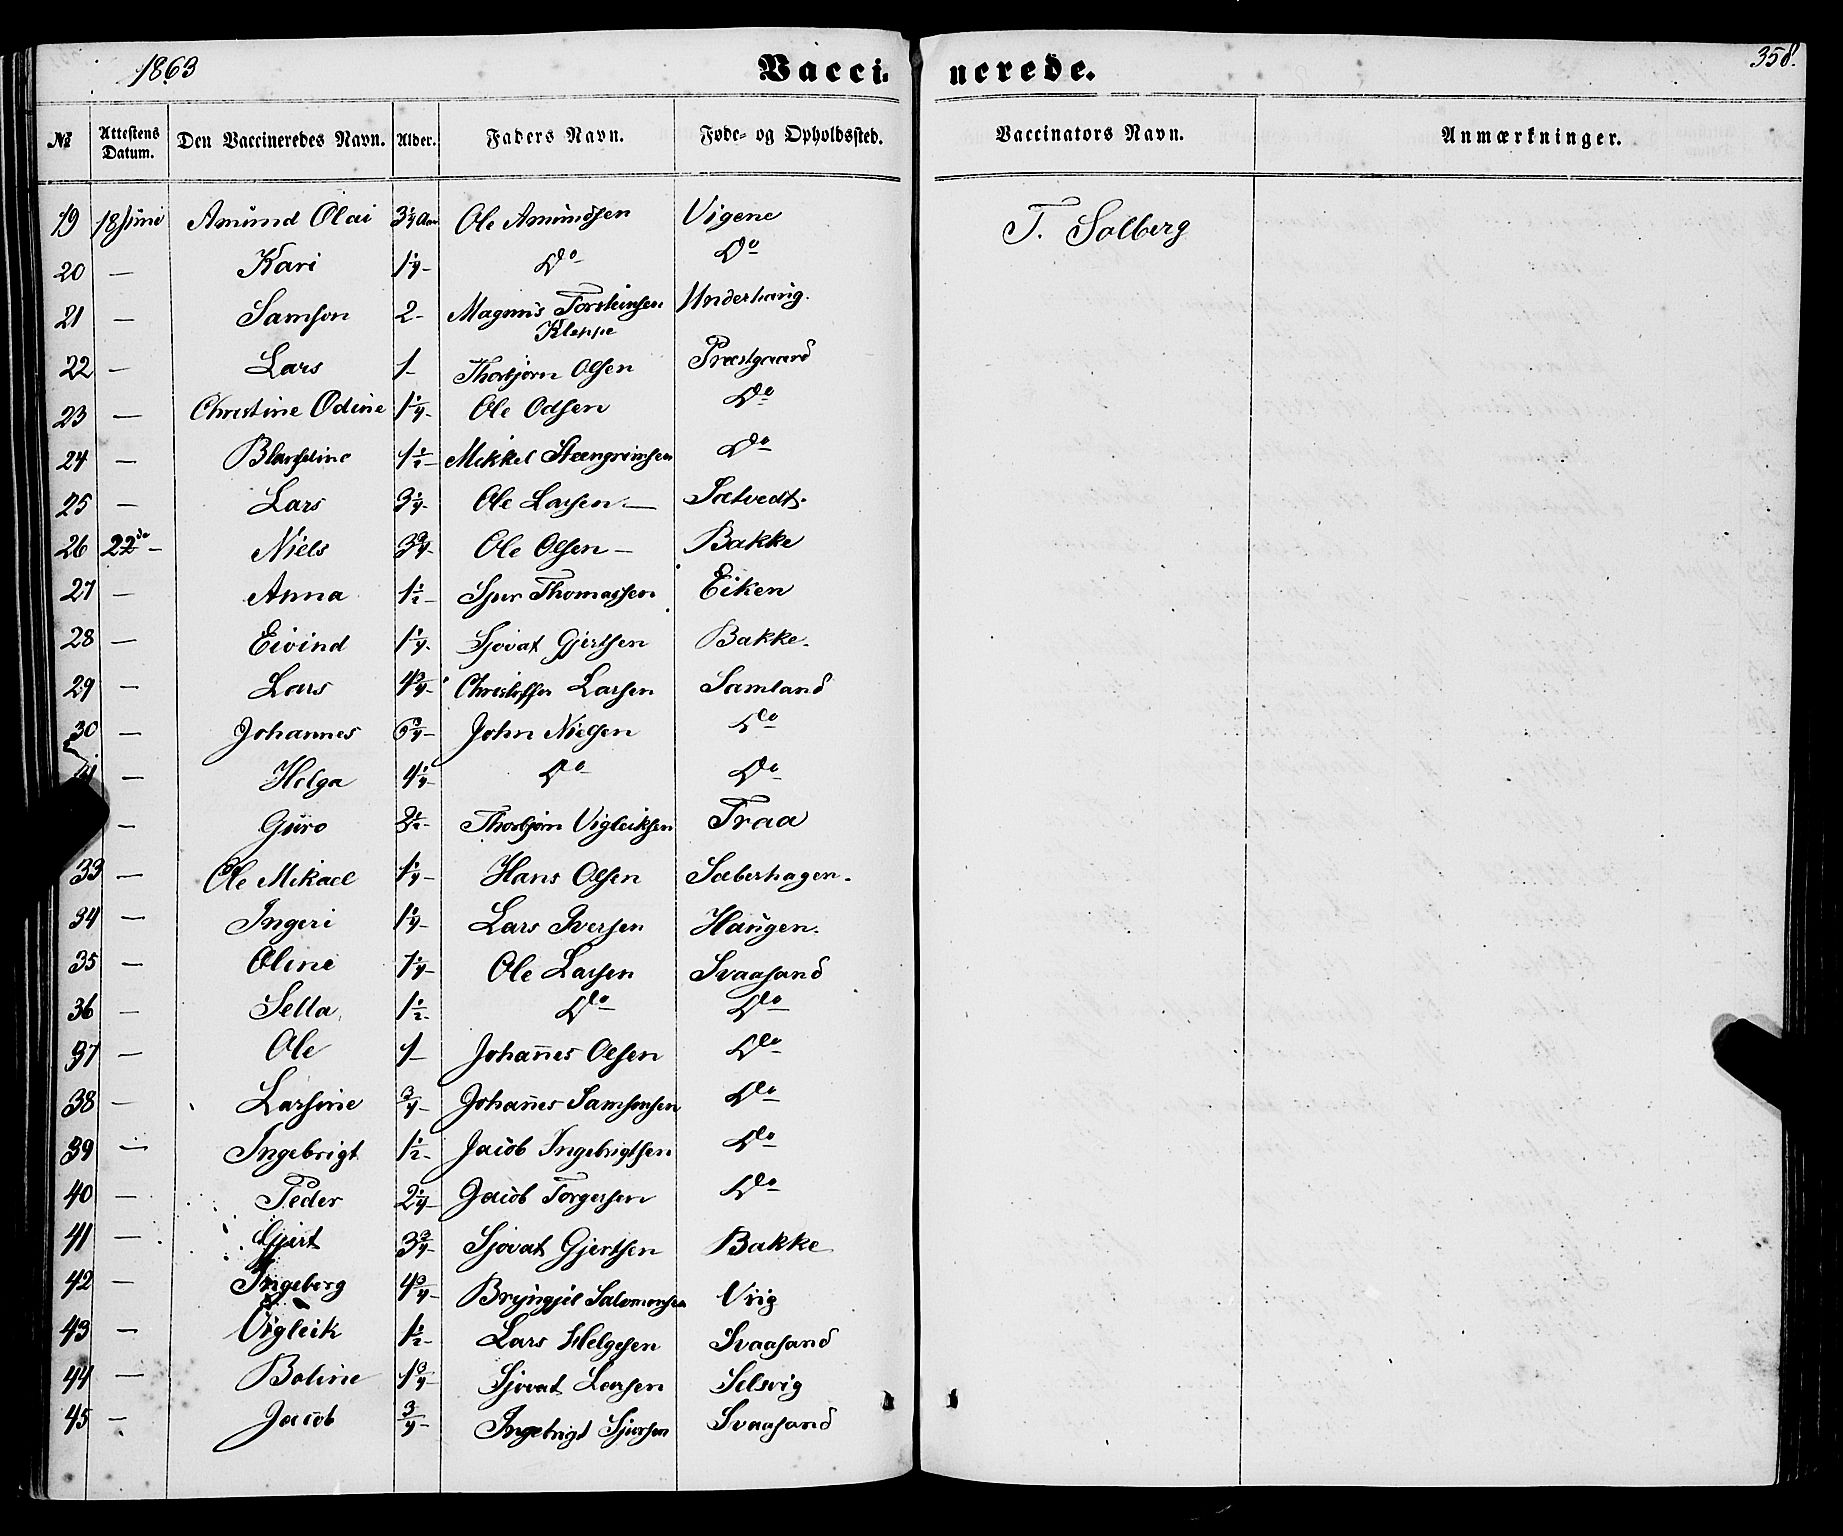 1863 Vacci- nerede. 358.
№ Attestens Datum. Den Vaccineredes Navn. Alder. Faders Navn. Føde- og Opholdssted. Vaccinators Navn. Anmærkninger.
19 18 Juni Amund Olai 3¼ Aar Ole Amundsen Vigene T. Solberg
20 — Kari 1¼- Do Do
21 — Samson 2- Magnus Torsteinsen Kleppe Underhaug.
22 — Lars 1- Thorbjørn Olsen Præstgaard
23 — Christine Odine 1¼- Ole Odsen Do
24 — 1½- Mikkel Steengrimsen Do
25 — Lars 3¼- Ole Larsen — Sætvedt.
26 22de - Niels 3¾- Ole Olsen — Bakke
27 — Anna 1½- Sjur Thomassen Eiken
28 — Eivind 1¼- Sjovat Gjertsen Bakke.
29 — Lars 4¾- Christoffer Larsen Samland
30 — Johannes 6¾- John Nielsen Do
— Helga 4¼- Do Do
— Guro Thorbjørn Vigleiksen Traa
33 — Ole Mikael 1¼- Hans Olsen Sæberhagen.
34 — Ingeri 1¼- Lars Iversen Haugen.
35 — Oline 1¼- Ole Larsen Svaasand
36 — Sella 1½- Do Do
37 — Ole 1- Johannes Olsen Do
38 — Larsine ¾- Johannes Samsonsen Do
39 — Ingebrigt 1½- Jacob Ingebrigtsen Do
40 — Peder 2¼- Jacob Torgersen Do
41 — Gjert 3¾- Sjovat Gjertsen Bakke
42 — Ingeberg 4¾- Bryngjel Salomonsen Viig
43 — Vigleik 1½- Lars Helgesen Svaasand
44 — Boline 1¾- Sjovat Larsen Selsvig
45 — Jacob ¾- Ingebrigt Sjursen Svaasand